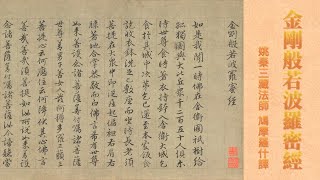 金剛般若波羅密經
姚秦三藏法師 鳩摩羅什譯
金剛般若波羅蜜經
如是我聞一時佛在舍衛國祇樹給
孤獨園與大比丘眾千二百五十人俱爾
時世尊食時著衣持鉢入舍衛大城乞
食於其城中次第乞已還至本處飯食
訖收衣鉢洗足已敷座而坐時長老須
菩提在大眾中即從座起偏袒右肩右
膝著地合掌恭敬而白佛言希有世尊
如來善護念諸菩薩善付囑諸菩薩
世尊善男子善女人發阿耨多羅三藐三
菩提心云何應住云何降伏其心佛言
善哉善哉須菩提如汝所說如來善護
念諸菩薩善付囑諸菩薩汝今諦聽